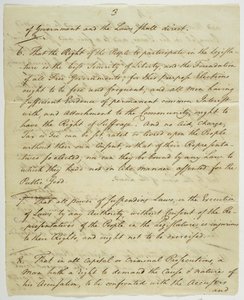 3
of Government and the Laws shall direct.
6. That the Right of the People to participate in the Legisla-
ture is the best Security of Liberty and the Foundation
of all Free Governments, for this purpose Elections
ought to be free and frequent, and all Men having
sufficient Evidence of permanent common Interest
with and attachment to the Community, ought to
have the Right of Suffrage. And no Aid, Charge,
Tax or Fee can be set rated or levied upon the People
without their own Consent or that of their Representa-
tives so elected, nor can they be bound by any Law to
which they have not in like manner assented for the
Public Good.
7. That all power of suspending Laws, or the Execution
of Laws by any Authority without Consent of the Re-
presentatives of the People in the Legislature, is injurious
to their Rights, and ought not to be exercised.
8. That in all Capital or Criminal Prosecutions a
Man hath a right to demand the Cause & nature of
his Accusation, to be confronted with the Accusers
and